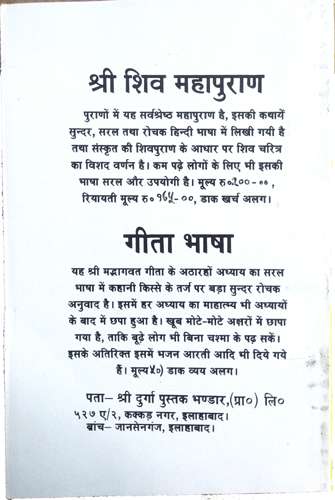 श्री शिव महापुराण
पुराणों में यह सर्वश्रेष्ठ महापुराण है, इसकी कथायें
सुन्दर, सरल तथा रोचक हिन्दी भाषा में लिखी गयी है
तथा संस्कृत की शिवपुराण के आधार पर शिव चरित्र
का विशद वर्णन है। कम पढ़े लोगों के लिए भी इसकी
भाषा सरल और उपयोगी है। मूल्य रु०२००-००,
रियायती मूल्य रु० १६५-००, डाक खर्च अलग।
गीता भाषा
यह श्री मद्भागवत गीता के अठारहों अध्याय का सरल
भाषा में कहानी किस्से के तर्ज पर बड़ा सुन्दर रोचक
अनुवाद है। इसमें हर अध्याय का माहात्म्य भी अध्यायों
के बाद में छपा हुआ है। खूब मोटे-मोटे अक्षरों में छापा
गया है, ताकि बूढ़े लोग भी बिना चश्मा के पढ़ सकें।
इसके अतिरिक्त इसमें भजन आरती आदि भी दिये गये
हैं। मूल्य५०) डाक व्यय अलग।
पता- श्री दुर्गा पुस्तक भण्डार,(प्रा०) लि०
५२७ ए/२, कक्कड़ नगर, इलाहाबाद।
ब्रांच- जानसेनगंज, इलाहाबाद।